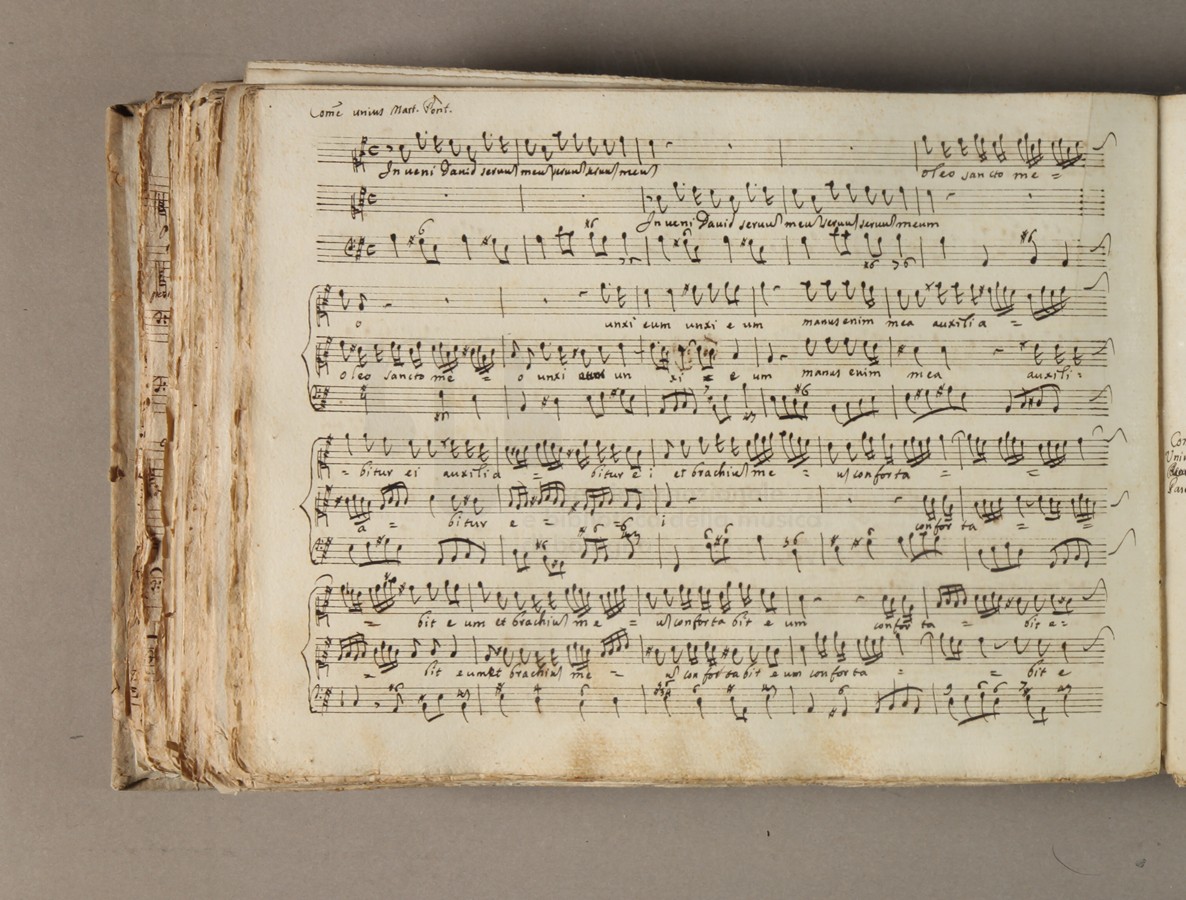 Com̄e unius Mart. Pont.
In ueni Dauid seruuſ meuſ seruuſ seruuſ meuſ
oleo sancto me =
In ueni Dauid seruuſ meuſ seruuſ seruuſ meum
o unxi eum unxi e um manus enim mea auxilia =
oleo sancto me = o unxi un xi = e um manus enim mea auxili =
= bitur ei auxilia = bitur e i et brachiuſ me = uſ conforta =
a = bitur e = i confor ta = =
= bit e um et brachiuſ me = uſ conforta bit e um confor ta = bit e =
= bit e um et brachiuſ me = uſ con for ta bit e um con for ta = = bit e
Com
Uni